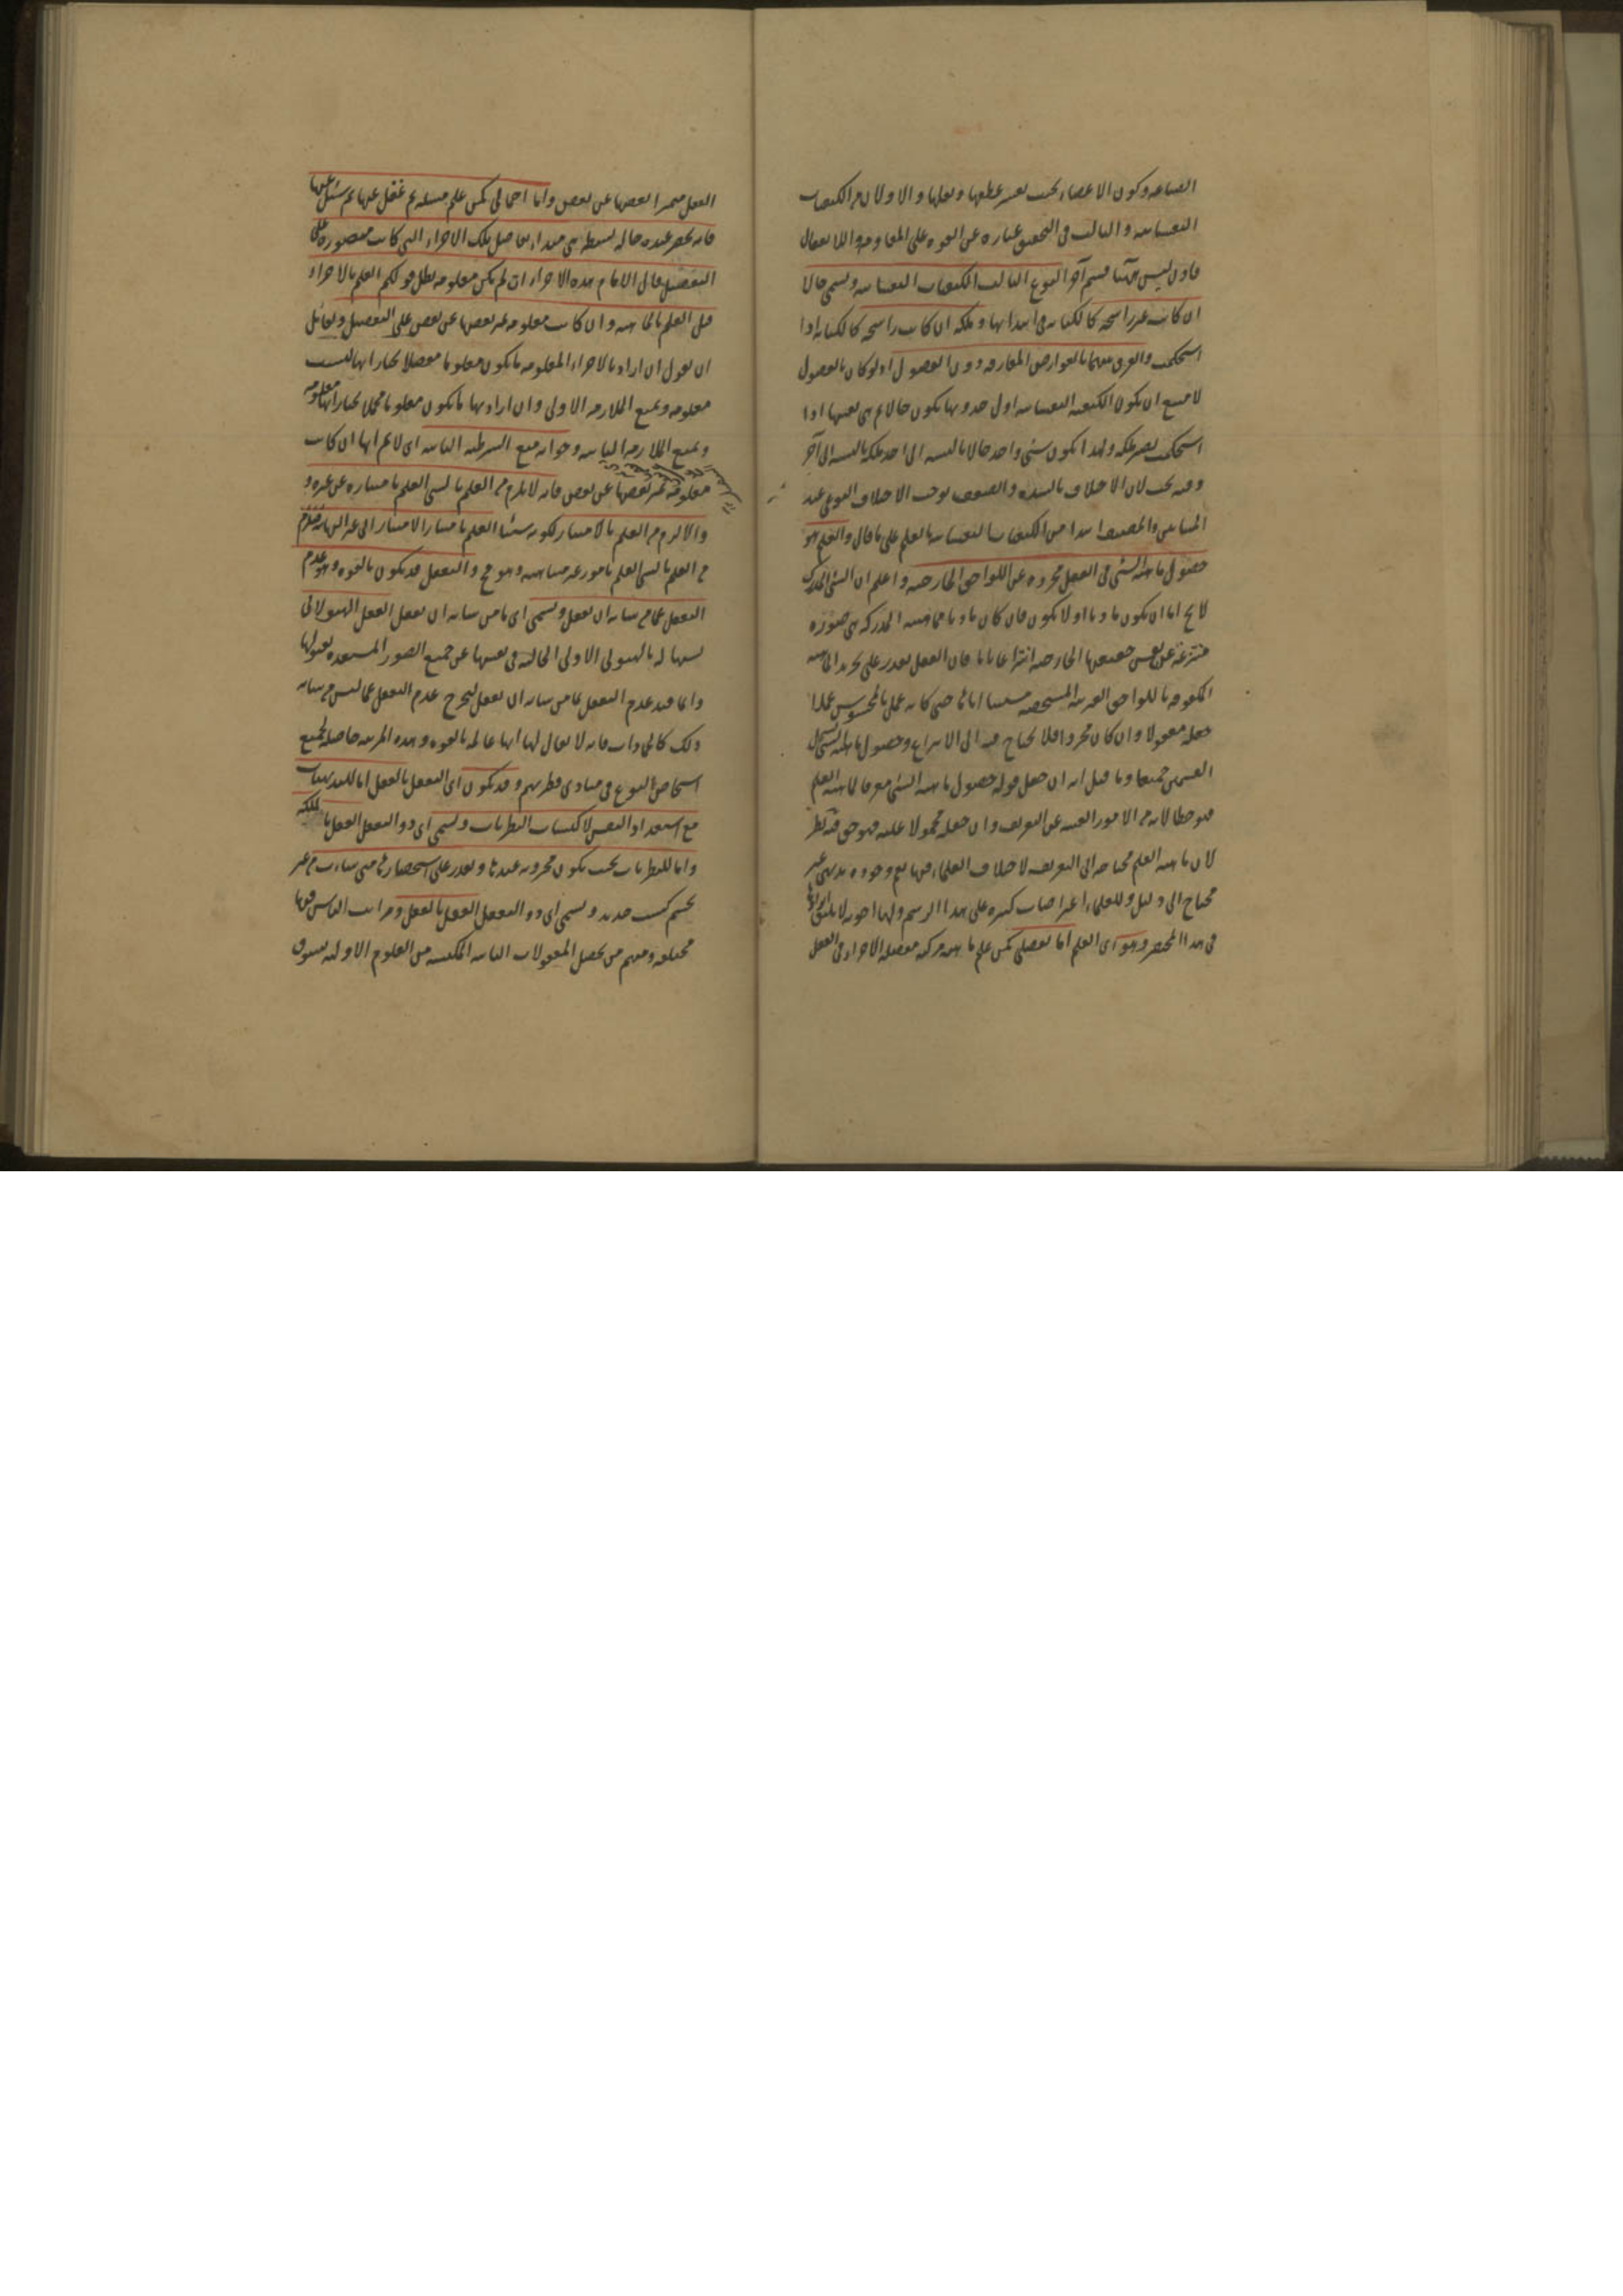 الصناعه وكون الاعضاء بحيث يعسر عطفها ونقلها والاولان من الكيفيات
النفسانيه والثالث فى التحقيق عباره عن القوه على المقاومه واللا انفعال
فاذن ليس ههنا قسم آخر النوع الثالث الكيفيات النفسانيه ويسمى حالا
ان كانت غير راسخه كالكتابه فى ابتدائها وملكه ان كانت راسخه كالكتابه اذا
استحكمت والفرق بينهما بالعوارض المفارقه دون الفصول اذ لو كان بالفصول
لامتنع ان تكون الكيفيه النفسانيه اول حدوثها تكون حالا ثم هى بعينها اذا
استحكمت تصير ملكه ولهذا يكون شئ واحد حالا بالنسبه الى احد وملكه بالنسبه الى آخر
وفيه بحث لان الاختلاف بالشده والضعف يوجب الاختلاف النوعى عند
المشائين والمصنف ابتدا من الكيفيات النفسانيه بالعلم على ما قال والعلم هو
حصول ماهيه الشئ فى العقل مجرده عن اللواحق الخارجيه واعلم ان الشئ المدرك
لا يخ اما ان يكون ماديا او لا يكون فان كان ماديا فماهيته المدركه هى صوره
منتزعه عن نفس حقيقتها الخارجيه انتزاعا تاما فان العقل يقدر على تجريد الماهيه
المكفوفه باللواحق الغريبه المشخصه مستثبتا اياها حتى كانه عمل بالمحسوس عملا
جعله معقولا وان كان مجردا فلا يحتاج فيه الى الانتزاع وحصول ماهيه الشئ يشمل
القسمين جميعا وما قيل انه ان جعل قوله حصول ماهيه الشئ معرفا لماهيه العلم
فهو خطا لانه من الامور الغنيه عن التعريف وان جعله محمولا عليه فهو حق فيه نظر
لان ماهيه العلم محتاجه الى التعريف لاختلاف العلماء فيها نعم وجوده بديهى غير
محتاج الى دليل وللعلماء اعتراضات كثيره على هذا الرسم ولها اجوبه لا يليق ايرادها
فى هذا المختصر وهو اى العلم اما تفصيلى كمن علم ماهيه مركبه مفصله الاجزاء فى العقل
العقل متميزا بعضها عن بعض واما اجمالى كمن علم مسئله ثم غفل عنها ثم سئل عنها
فانه يحضر عنده حاله بسيطه هى مبدا تفاصيل تلك الاجزاء التى كانت متصوره على
التفصيل قال الامام هذه الاجزاء ان لم تكن معلومه بطل قولكم العلم بالاجزاء
قبل العلم بالماهيه وان كانت معلومه تميز بعضها عن بعض على التفصيل ولقائل
ان يقول ان اراد بالاجزاء المعلومه ما تكون معلوما مفصلا نختار انها ليست
معلومه ونمنع الملازمه الاولى وان اراد بها ما تكون معلوما مجملا نختار انها معلومه
ونمنع الملازمه الثانيه وجوابه منع الشرطيه الثانيه اى لا نم انها ان كانت
معلومه تميز بعضها عن بعض فانه لا يلزم من العلم بالشئ العلم بامتيازه عن غيره و
والا لزم من العلم بالامتياز لكونه شيئا العلم بامتياز الامتياز الى غير النهايه فيلزم
من العلم بالشئ العلم بامور غير متناهيه وهو مح والتعقل قد يكون بالقوه وهو عدم
التعقل عما من شانه ان يعقل ويسمى اى ما من شانه ان يعقل العقل الهيولانى
تشبيها له بالهيولى الاولى الخاليه فى نفسها عن جميع الصور المستعده لقبولها
وانما قيد عدم التعقل عما من شانه ان يعقل ليخرج عدم التعقل عما ليس من شانه
ذلك كالجمادات فانه لا يقال لها انها عالمه بالقوه وهذه المرتبه حاصله لجميع
اشخاص النوع فى مبادى فطرتهم وقد يكون اى التعقل بالفعل اما للبديهيات
مع استعداد النفس لاكتساب النظريات ويسمى اى ذو التعقل العقل بالملكه
واما للنظريات بحيث تكون مخزونه عندها وتقدر على استحضارها متى شاءت من غير
تجشم كسب جديد ويسمى اى ذو التعقل العقل بالفعل ومراتب الناس فيها
مختلفه ومنهم من يحصل المعقولات الثانيه المكتسبه من العلوم الاوليه بشوق